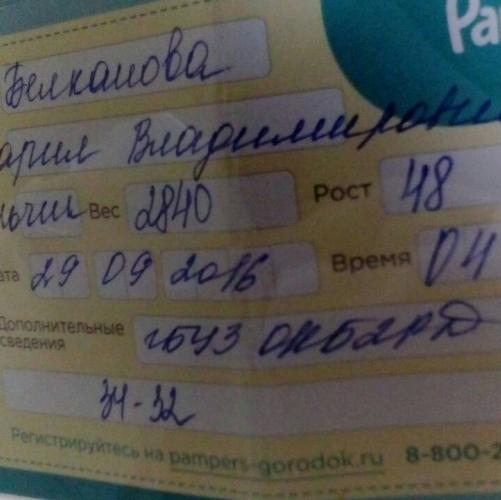 Pa
Белканова
Владимировн
Вес 2840 Рост 48
ата 29 09 2016 Время 04
Дополнительные
сведения
гбуз
34-32
Регистрируйтесь на pampers-gorodok.ru 8-800-2